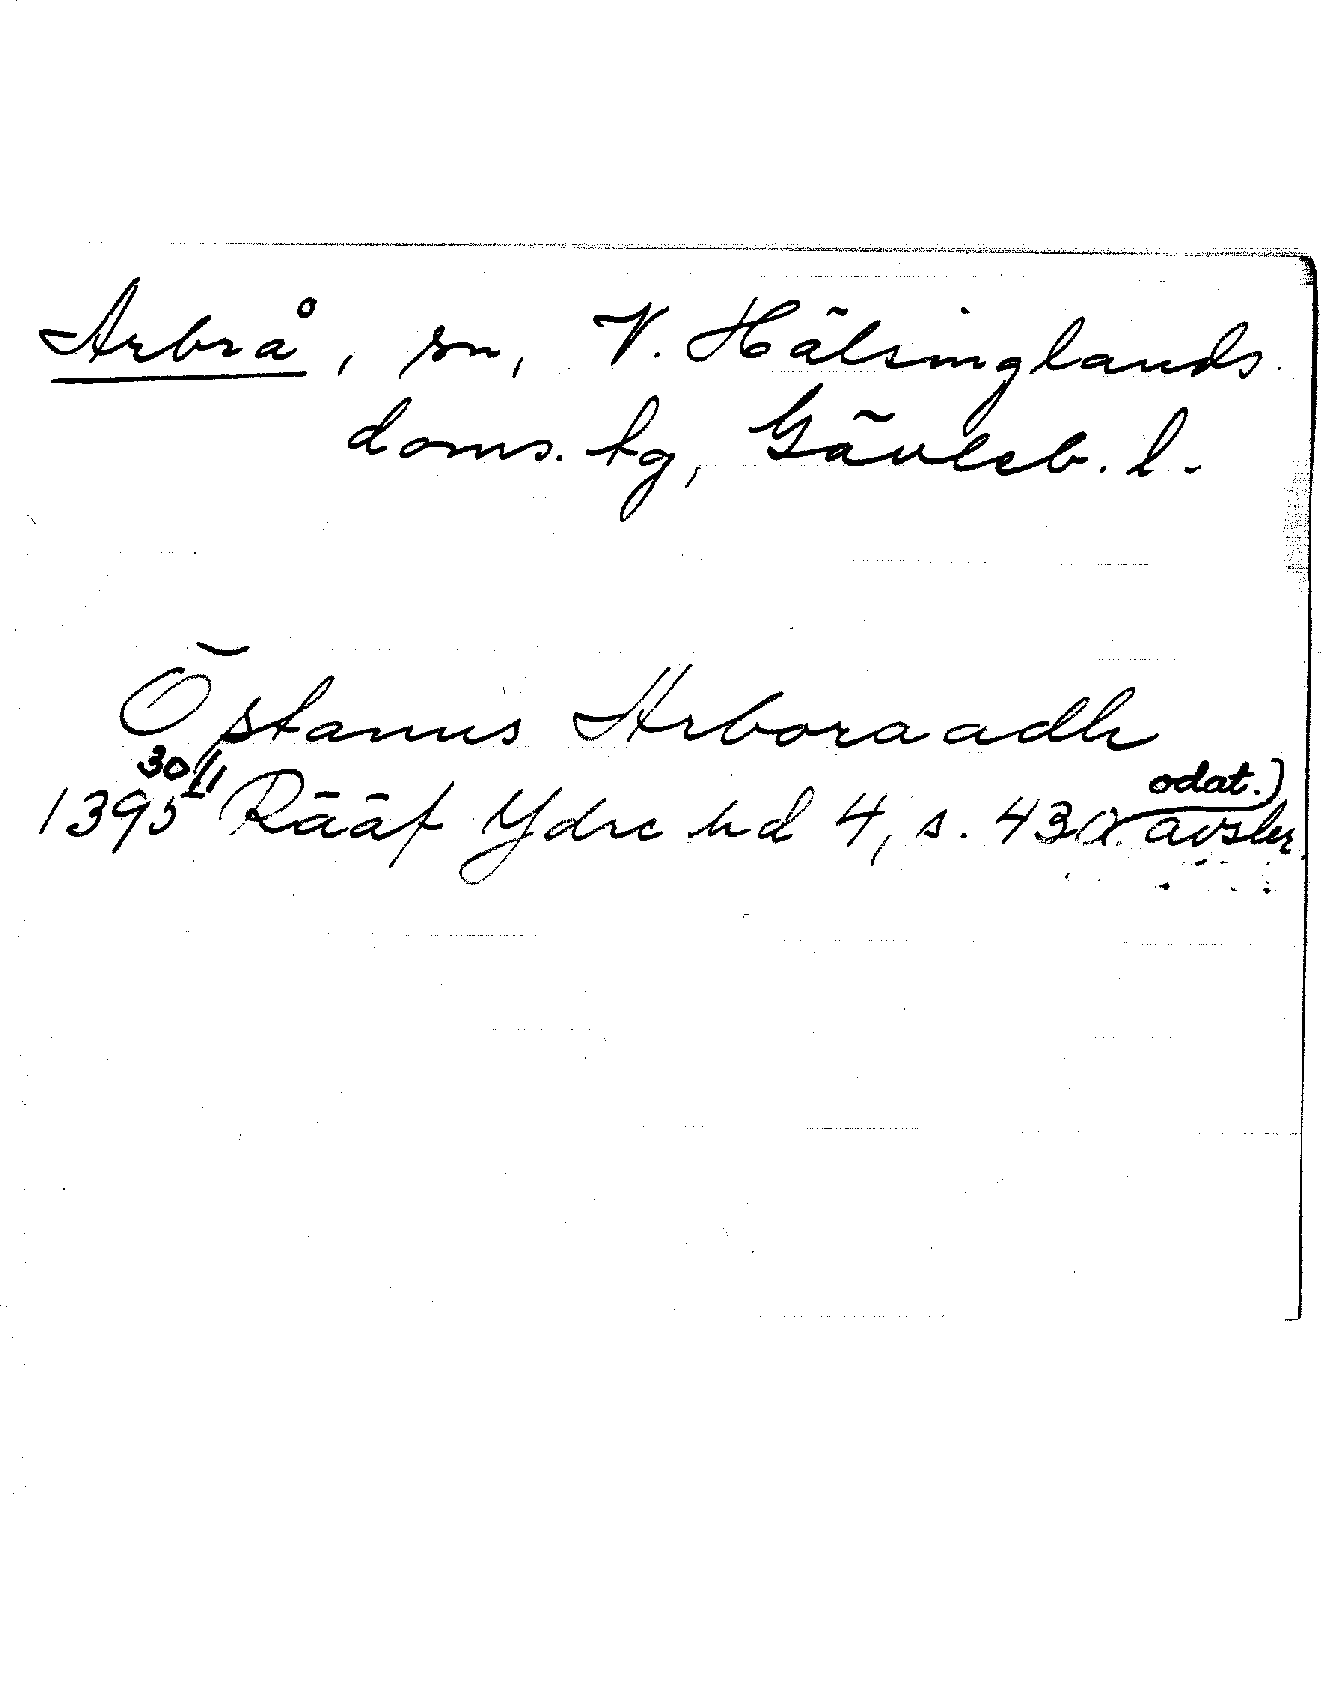 Arbrå, sn, V. Hälsinglands
doms.tg, Gävleb. l.
Östanus Arboraadh
1395 30/11 Rääf Ydre hd 4, s. 430 (odat.) avskr.